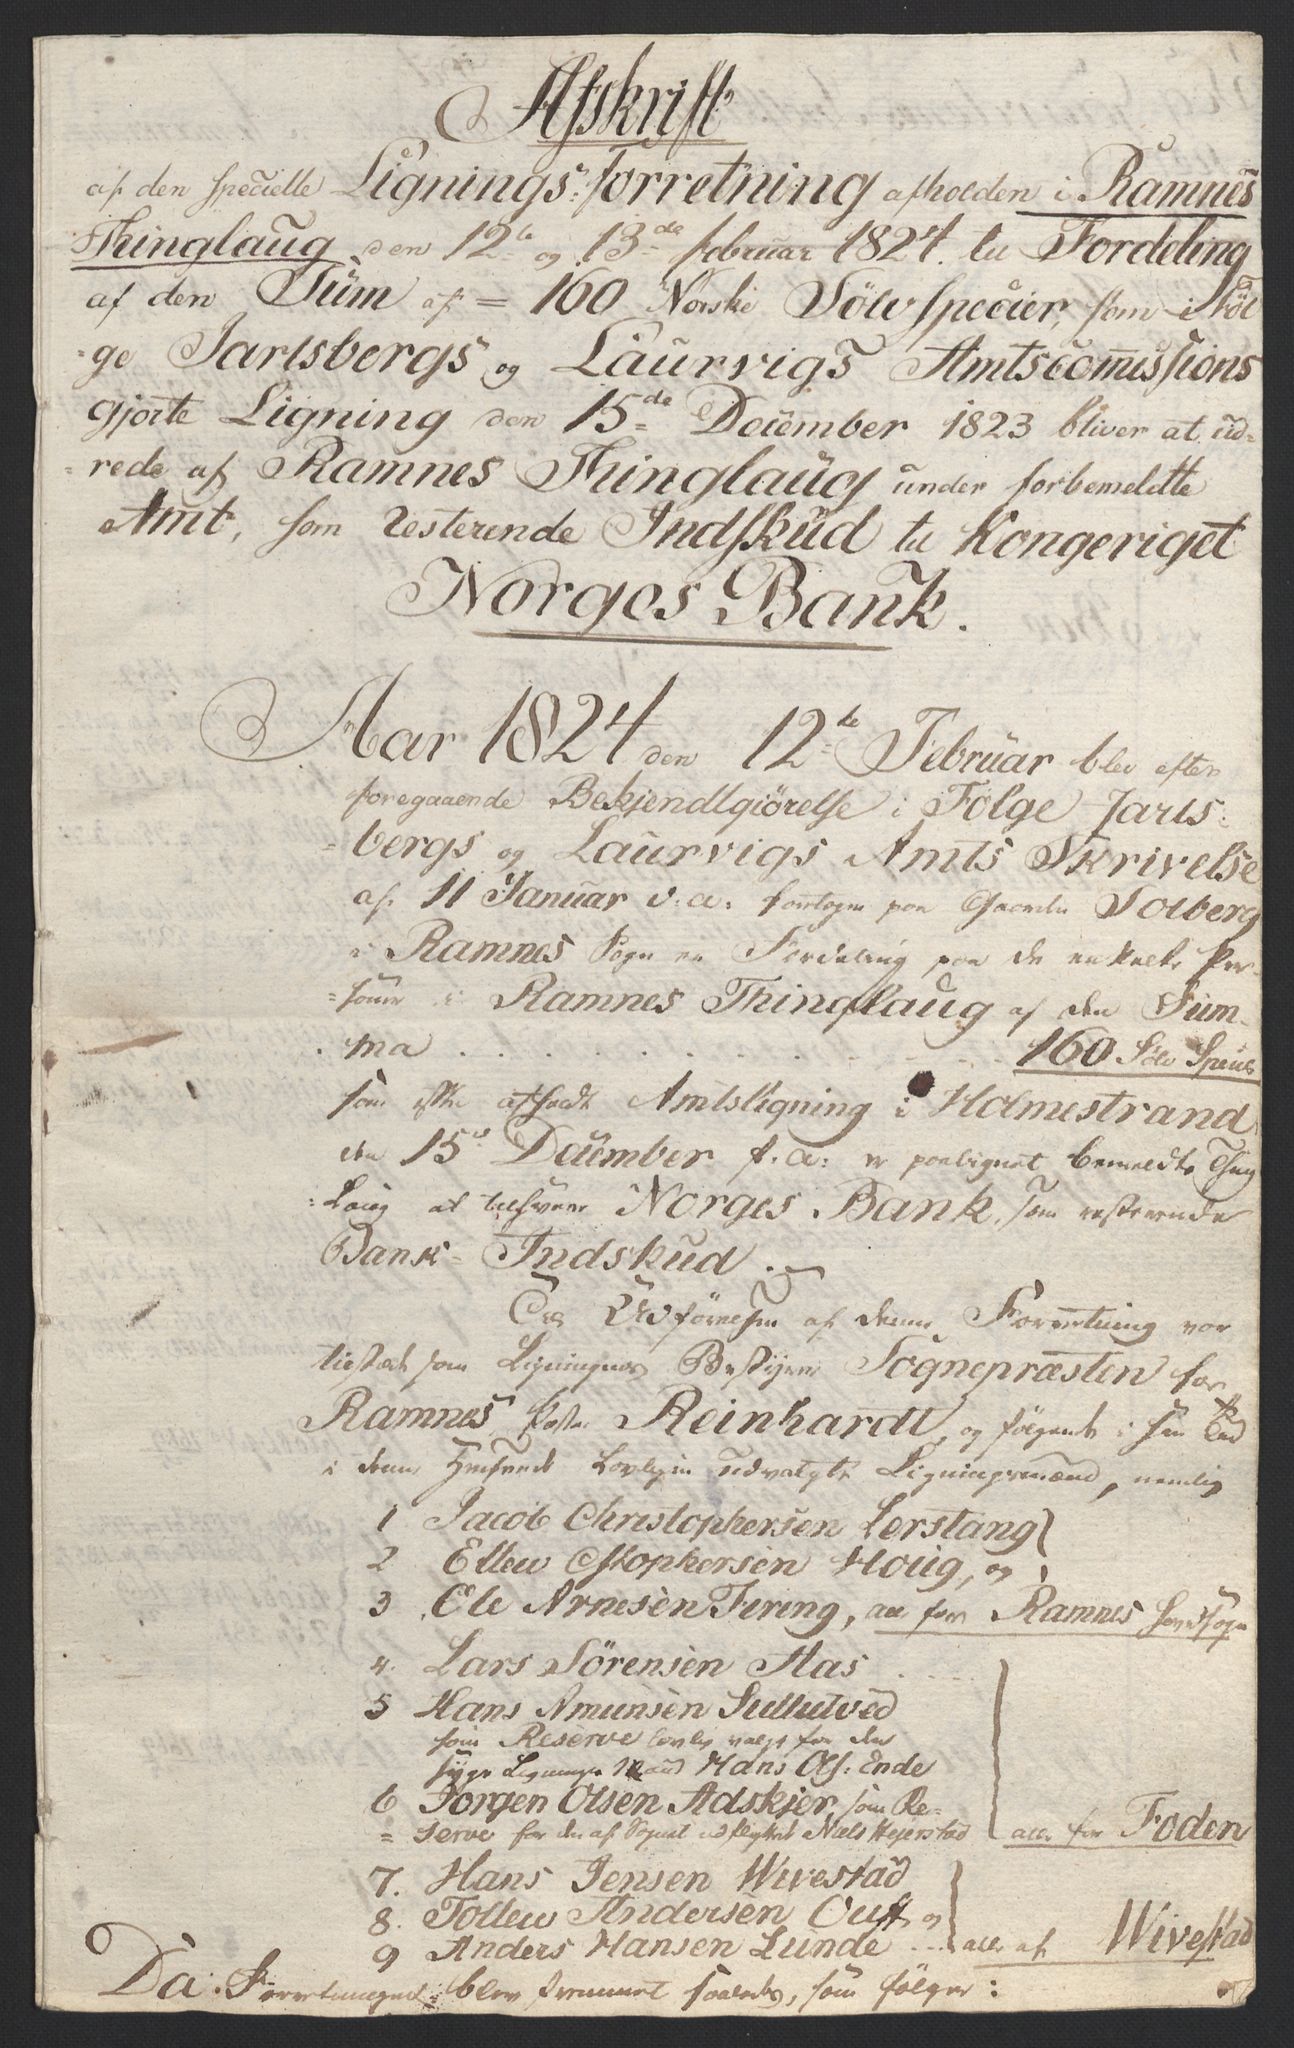 Afskrift
af den specielle Lignings-forretning afholden i Ramnes
Thinglaug den 12te og 13de februar 1824. til Fordeling
af den Sum af = 160 Norske Sölv Specier, som i Föl
-ge Jarlsbergs og Laurvigs Amtscommissions
gjorte Ligning den 15de December 1823 bliver at ud=
=rede af Ramnes Thinglaug under forbemeldte
Amt, som resterende Indskud til Kongeriget
Norges Bank.
Aar 1824 den 12te Februar blev efter
foregaaende Bekjendtgiörelse i Fölge Jarls-
=bergs og Laurvigs Amts Skrivelse
af 11 Januar d: a: foretagen paa Gaarden Solberg
i Ramnes Sogn en Fordeling paa de enkelte Per-
=soner i Ramnes Thinglaug af den Sum-
ma . . . . . . . . . . 160 Sölv Specier
som efter afholdt Amtsligning i Holmestrand
den 15de December f. a: er paalignet bemeldte Thing
=Laug at tilsvare Norges Bank, som resterende
Bank-Indskud.
Til Udförelsen af denne Forretning var
tilstæde som Ligningens Bestyrer Sognepræsten for
Ramnes Pastor Reinhardt, og fölgende i
i denne Lovligen udvalgte Ligningsmænd, nemlig
1 Jacob Christophersen Lerstang
2 Ellew Stophersen Houg, og
3 Ole Arnesen Firing, alle for Ramnes Hovedsogn
4. Lars Sörensen Aas
5 Hans Amunsen Sullutved
som Reserve lovlig valgt for den
syge Lignings Mand Hans Ols: Ende
6 Jorgen Olsen Adskjer, som Re=
=serve for den af Sognet udflyttet Niels Hejerstad alle for Foden
7. Hans Jensen Wivestad
8. Tollew Andersen Ouft og
9 Anders Hansen Lunde ... alle af Wivestad
Da Forretningen blev fremmet saaledes, som fölger: